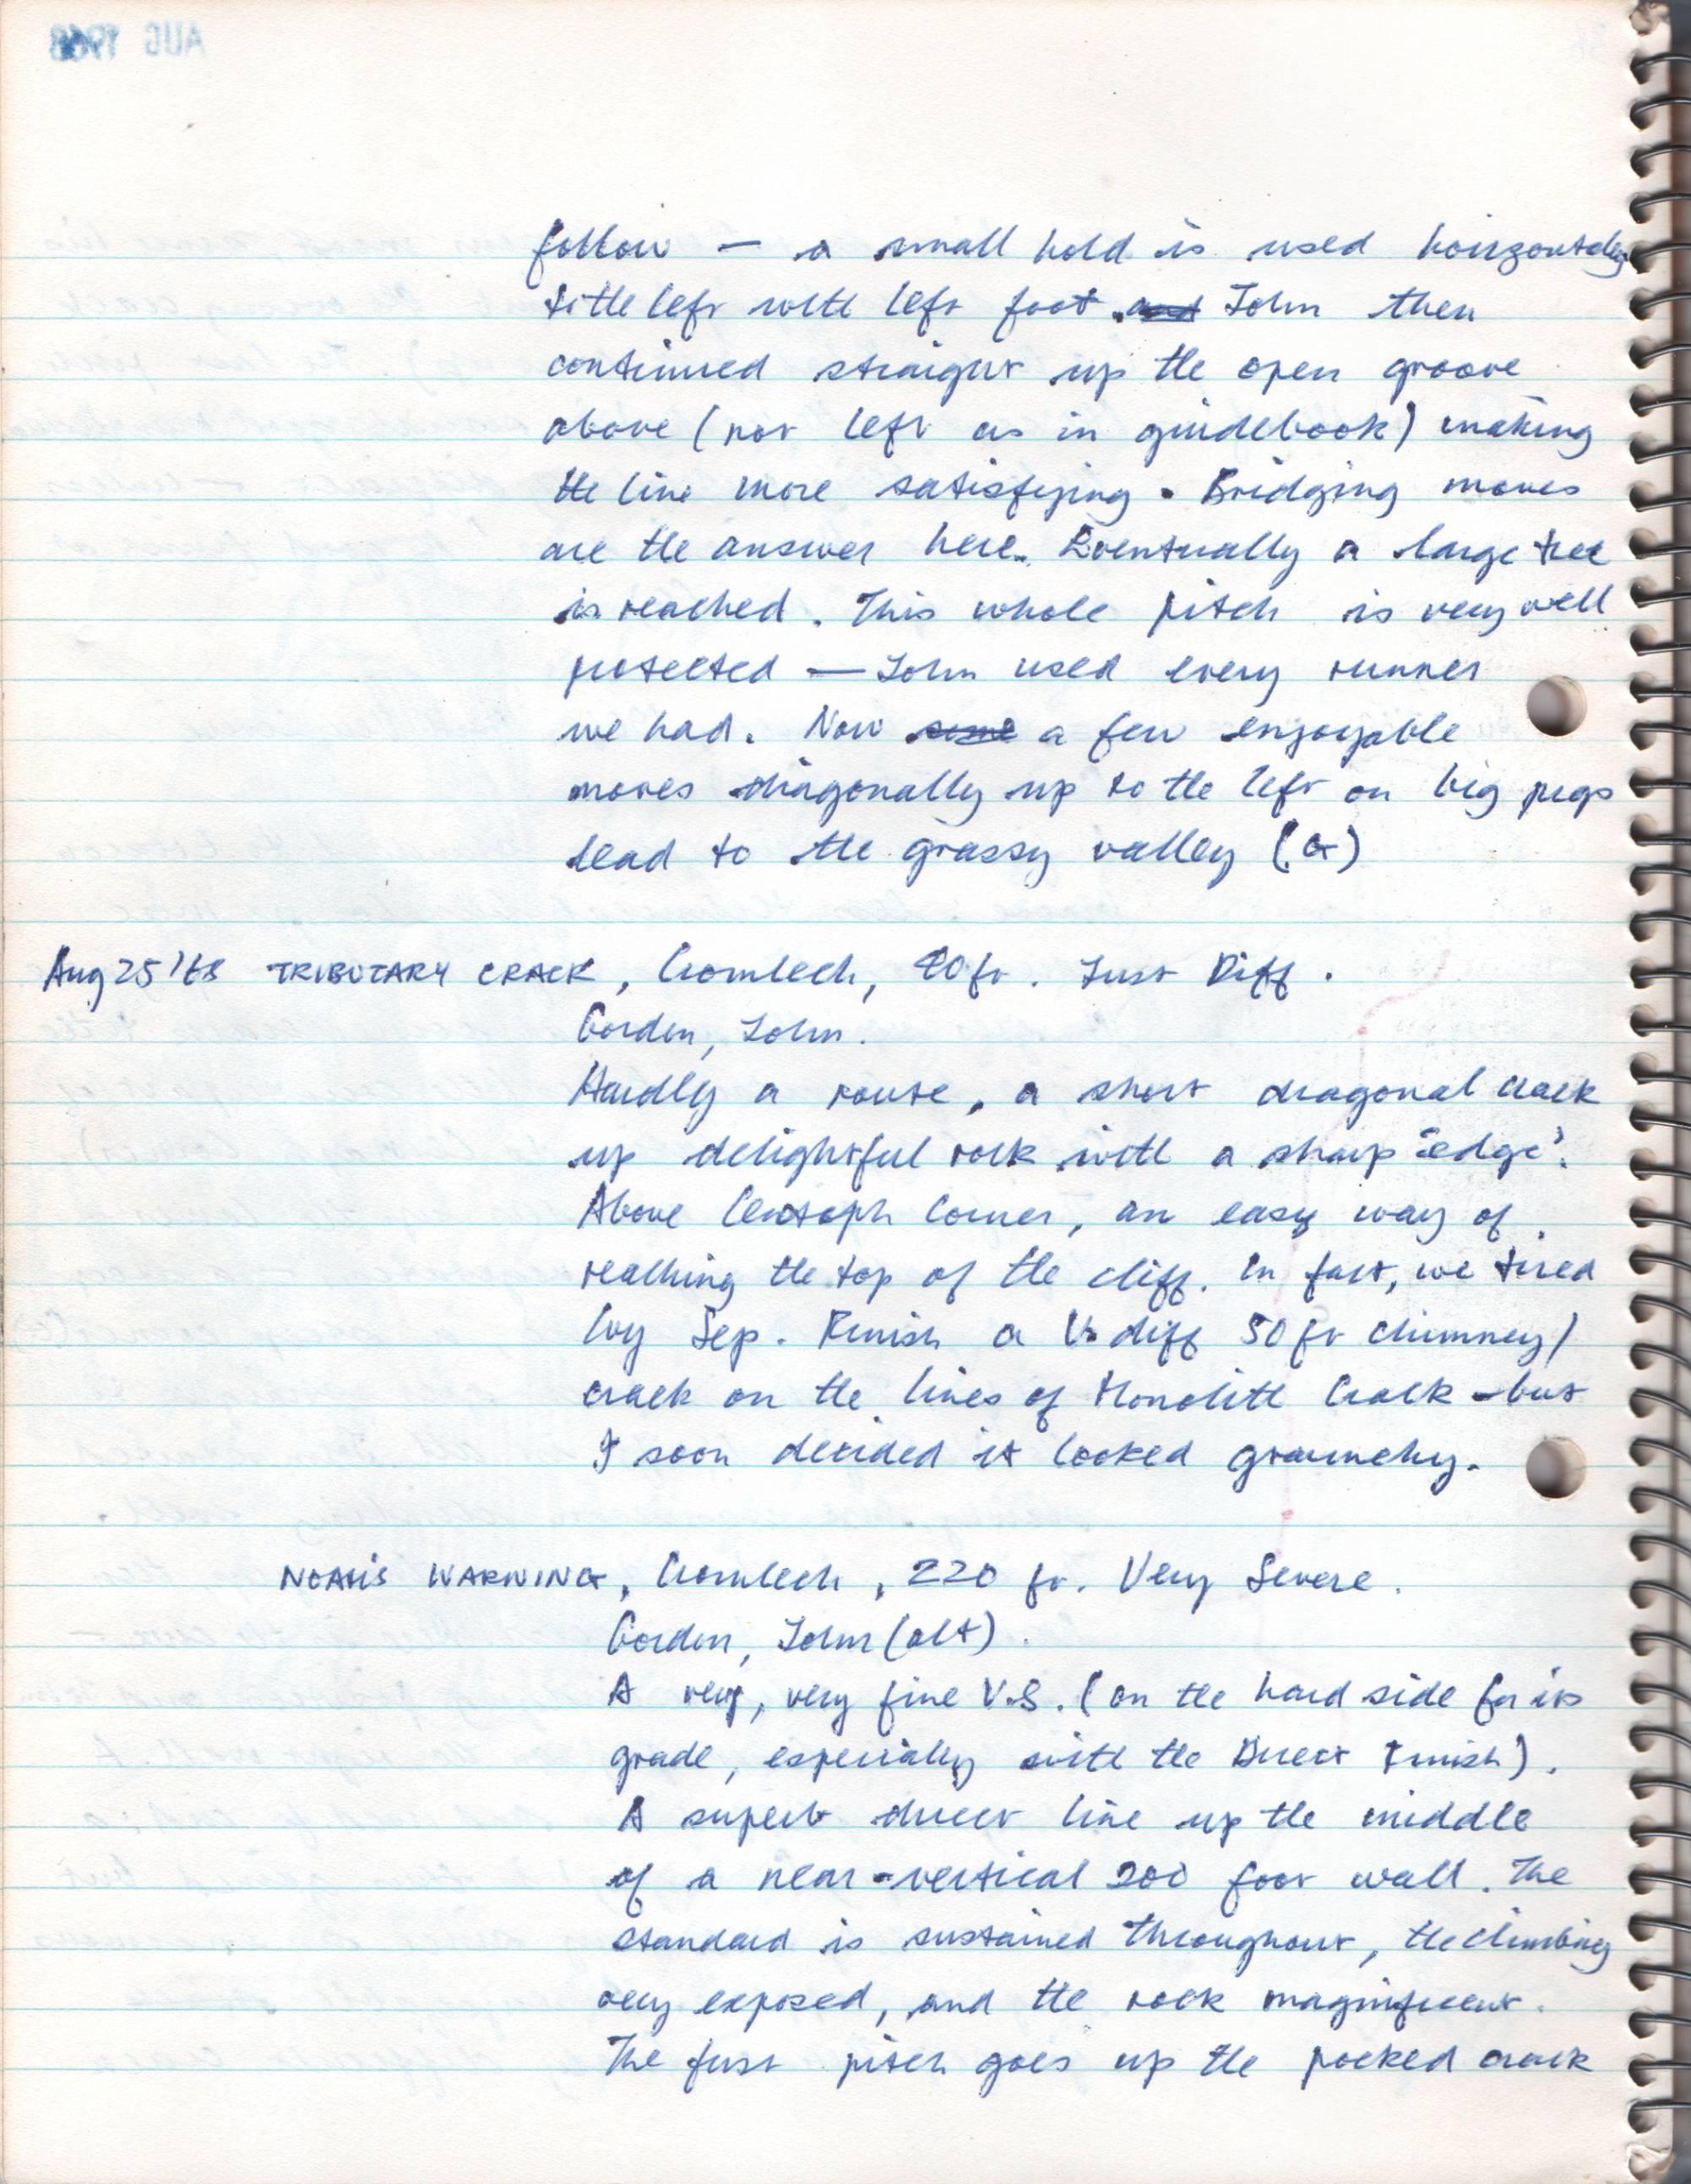 AUG 1968
follow — a small hold is used horizontally
little left with left foot. and John then
continued straight up the open groove
above (not left as in guidebook) making
the line more satisfying. Bridging moves
are the answer here. Eventually a large tree
is reached. This whole pitch is very well
protected — John used every runner
we had. Now some a few enjoyable
moves diagonally up to the left on big pegs
lead to the grassy valley (G)
Aug 25 '68 TRIBUTARY CRACK, Cromlech, 40 ft. Just Diff.
Gordon, John.
Hardly a route, a short diagonal crack
up delightful rock with a sharp 'edge'.
Above Cenotaph Corner, an easy way of
reaching the top of the cliff. In fact, we tried
Ivy Sep. Finish a V. diff 50 ft chimney/
crack on the lines of Monolith Crack – but
I soon decided it looked graunchy.
NOAH'S WARNING, Cromlech, 220 ft. Very Severe.
Gordon, John (alt).
A very, very fine V.S. (on the hard side for its
grade, especially with the Direct Finish).
A superb direct line up the middle
of a near-vertical 200 foot wall. The
standard is sustained throughout, the climbing
very exposed, and the rock magnificent.
The first pitch goes up the pocked crack